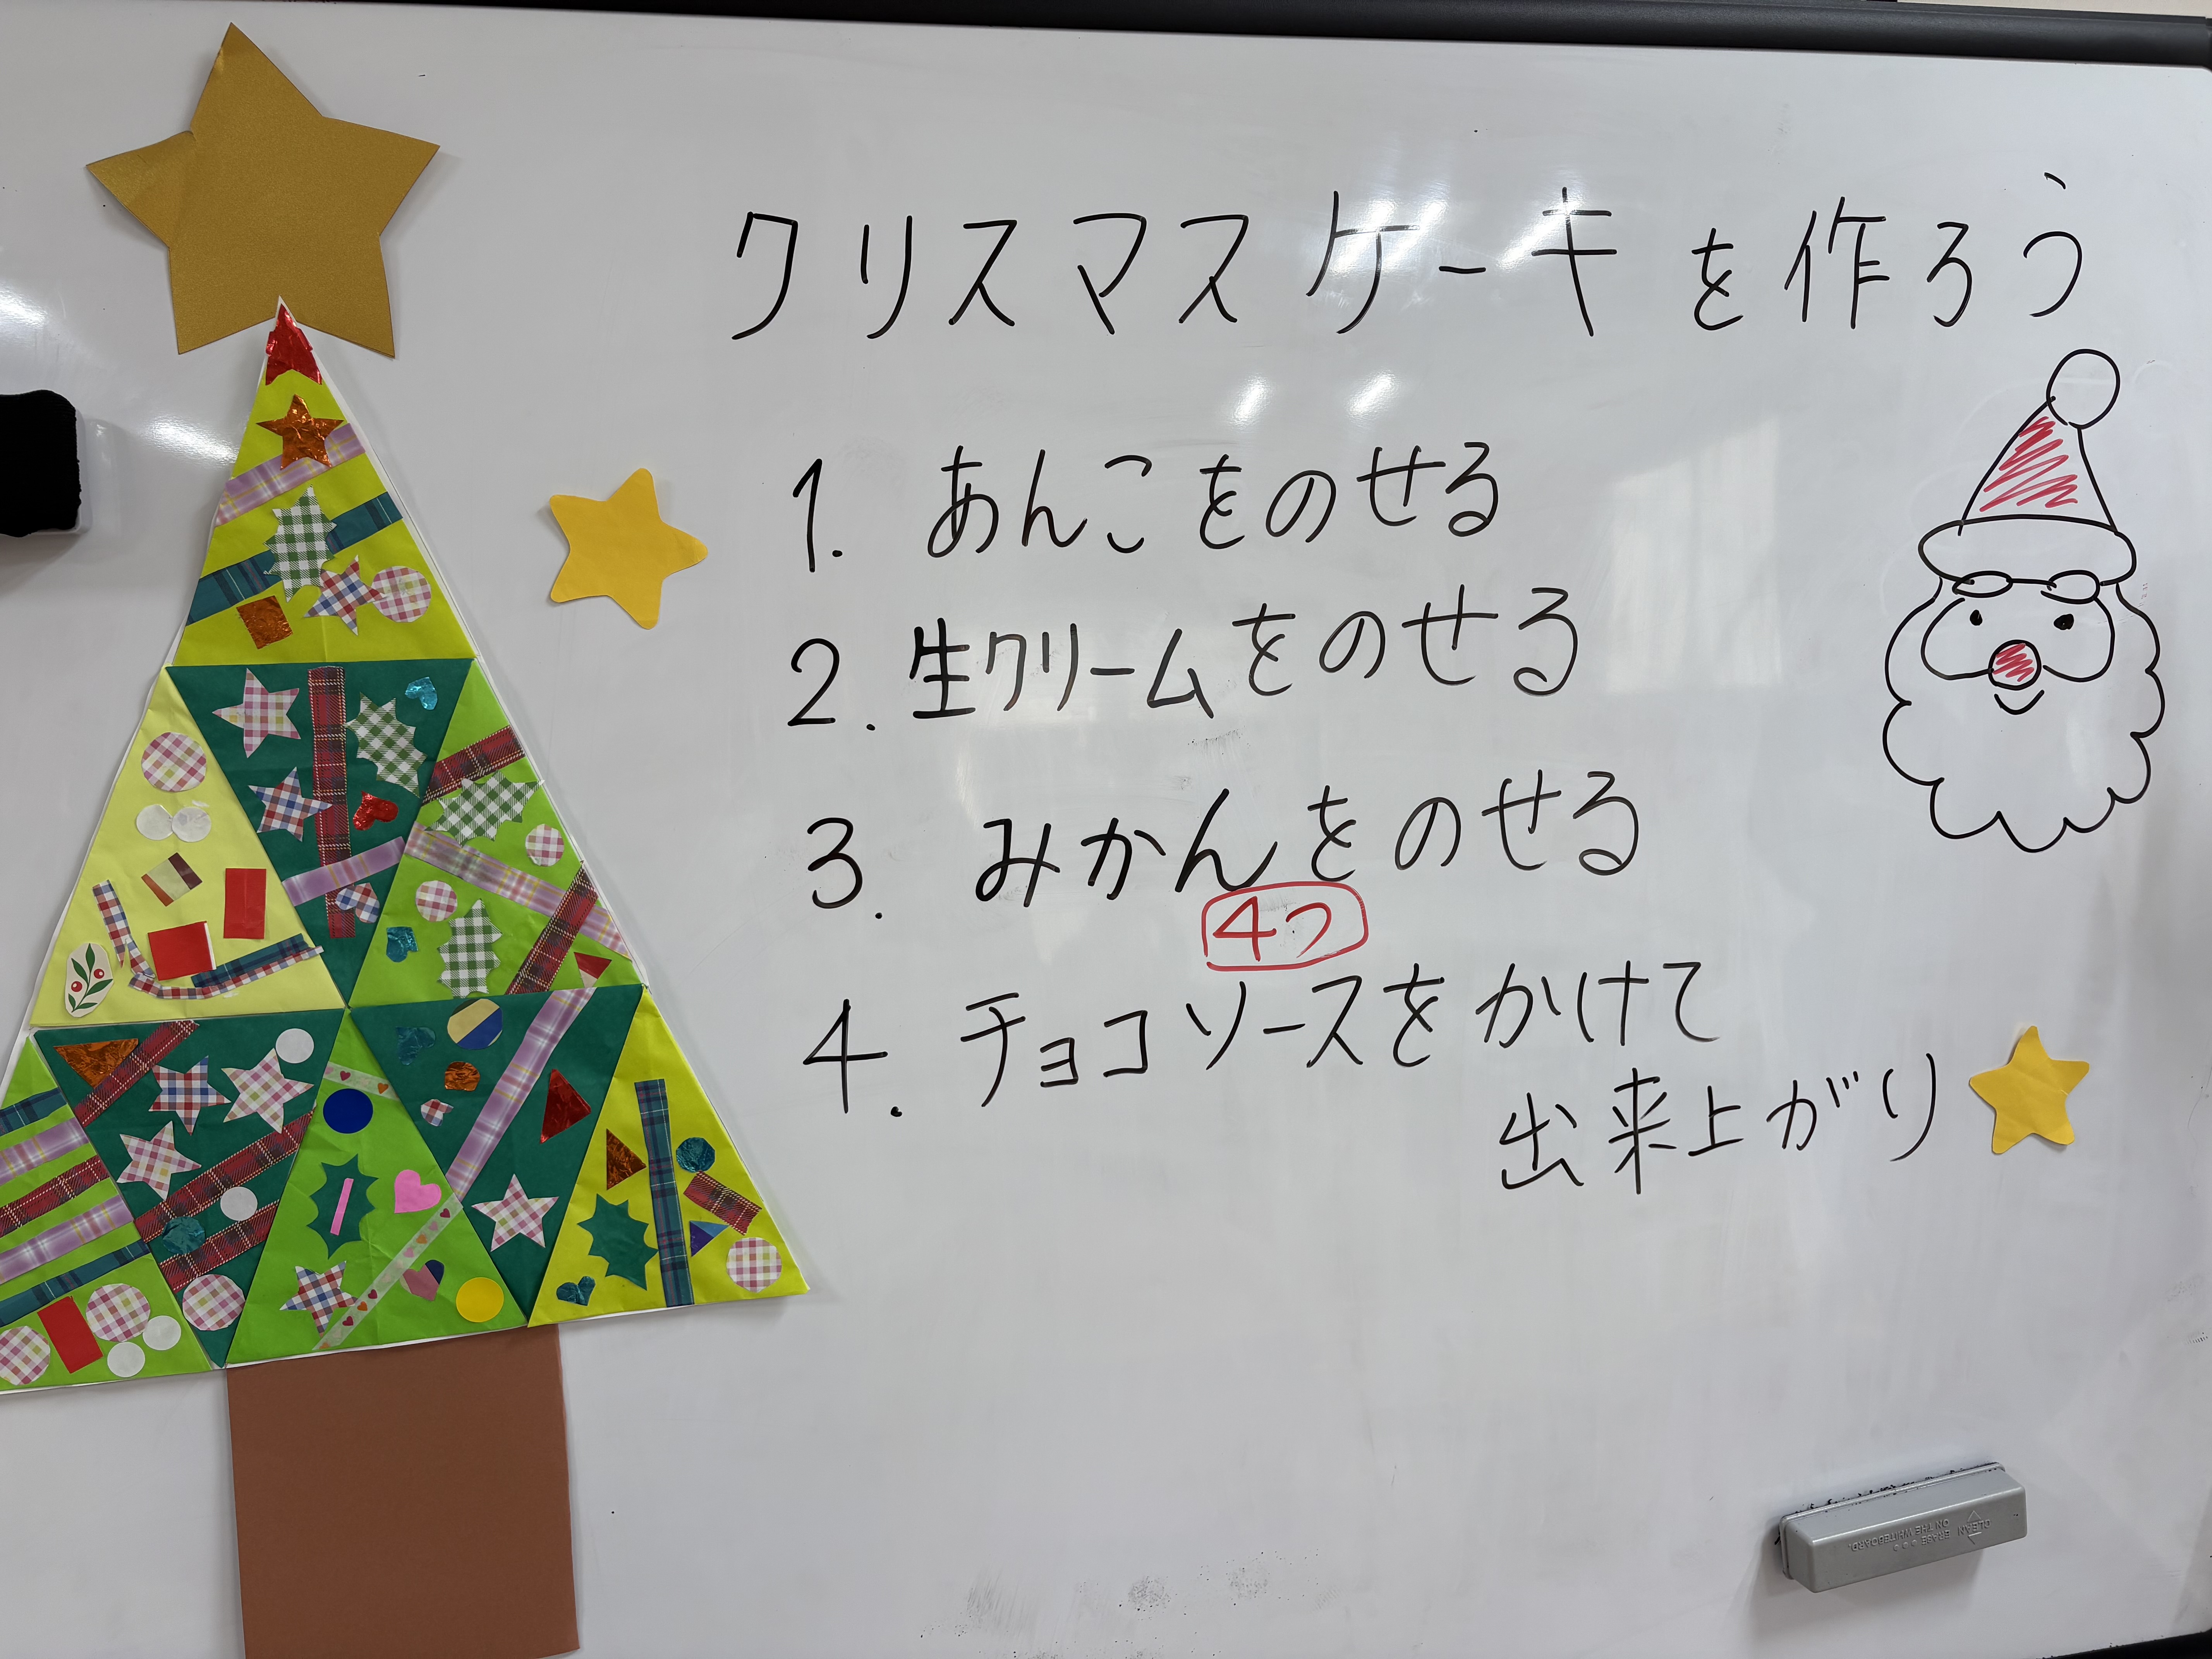 クリスマスケーキを作ろう
1. あんこをのせる
2. 生クリームをのせる
3. みかんをのせる
4つ
4. チョコソースをかけて
出来上がり
CLEAN ERASE
ON THE WHITEBOARD.